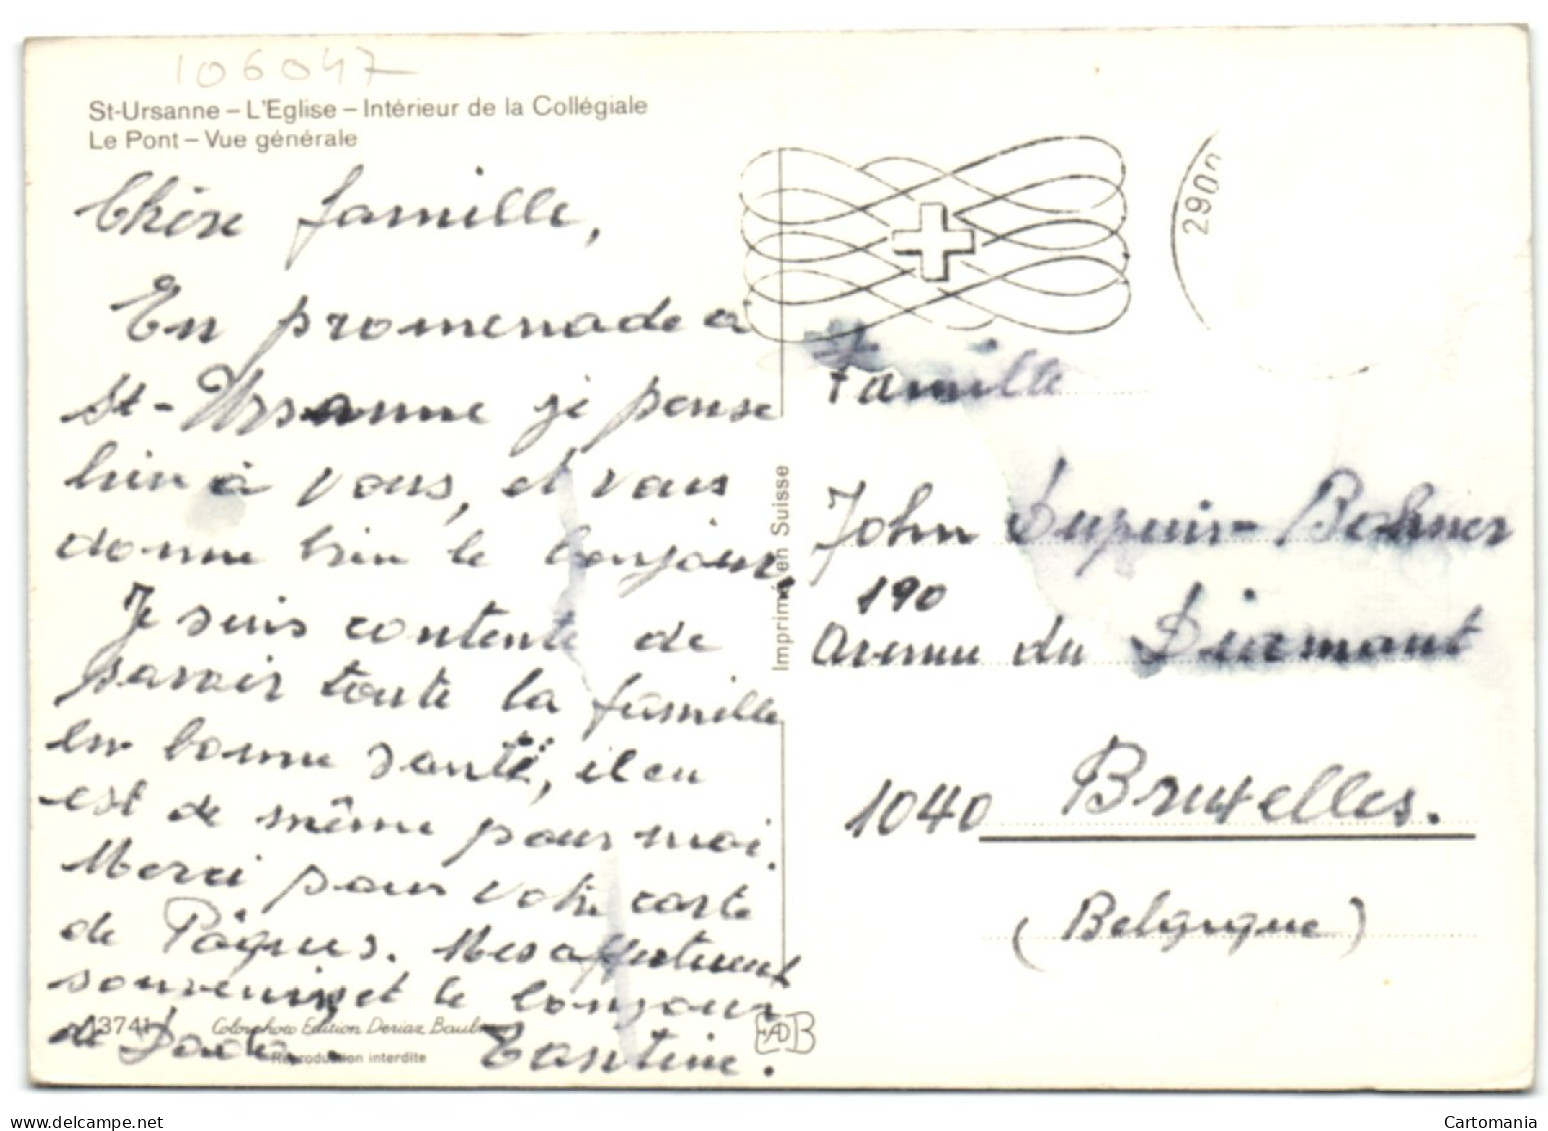 106047
St-Ursanne – L'Eglise – Intérieur de la Collégiale
Le Pont – Vue générale
Chère famille,
En promenade à
St-Ursanne je pense
bien à vous, et vous
donne bien le bonjour,
Je suis contente de
savoir toute la famille
en bonne santé, il en
est de même pour moi.
Merci pour votre carte
de Pâques. Mes affectueux
souvenirs et le bonjour
de Tantine.
A 3741
Colorphoto Edition Deriaz Baulmes
Reproduction interdite
Imprimé en Suisse
EADB
2900
Famille
John Dupuis-Bohner
190
Avenue du Diamant
1040 Bruxelles.
(Belgique)
Cartomania